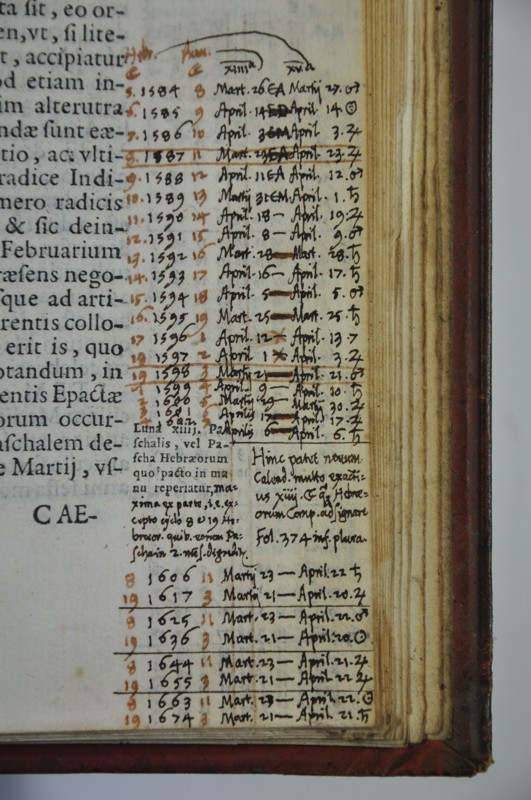 ta sit, eo or-
en, vt, si lite-
t, accipiatur
od etiam in-
im alterutra
ndæ sunt eæ-
tio, ac vlti-
radice Indi-
mero radicis
& sic dein-
Februarium
ræsens nego-
sque ad arti-
rentis collo-
erit is, quo
otandum, in
entis Epactæ
orum occur-
aschalem de-
e Martij, vs-
CAE-
Hebr.
xiiiiª xvª
5. 1584 8 Mart. 26 Martij 27. ♂
6. 1585 9 April. 14 April 14 ☉
7. 1586 10 April. 3 April 3. ♃
8. 1587 11 Mart. 23 April. 23. ♃
9. 1588 12 April. 11 April. 12. ♂
10. 1589 13 Martij 31 April. 1. ♄
11. 1590 14 April. 18 – April. 19. ♃
12. 1591 15 April. 8 – April. 9. ♂
13. 1592 16 Mart. 28 Mart. 28. ♄
14. 1593 17 April. 16 – April. 17. ♄
15. 1594 18 April. 5 April. 5. ♂
16. 1595 19 Mart. 25 Mart. 25. ♄
17 1596 1 April. 12 April. 13
18 1597 2 April 1 April. 3. ♃
19 1598 3 Martij 21 April. 21. ♂
1 1599 4 April 9 – April. 10. ♄
2 1600 5 Martij 29 – Martij 30. ♃
3 1601 6 Aprilis 17 April. 17. ♃
Aprilis 6 April. 6. ♄
Luna xiiij. Pa-
schalis, vel Pa-
scha Hebræorum
quo pacto in ma
nu reperiatur, ma-
xima ex parte, i.e. ex-
cepto cyclo 8 & 19 He-
breor. quib.
Hinc patet novum
Calend. multo exacti-
us xiiij. Hebræ-
orum Comp. assignare
Fol. 374 inf. plura.
8 1606 11 Martij 23 — April. 22 ♄
19 1617 3 Martij 21 — April. 20. ♃
8 1625 11 Mart. 23 — April. 22. ♂
19 1636 3 Mart. 21 — April. 20. ☉
8 1644 11 Mart. 23 — April. 21. ♃
19 1655 3 Mart. 21 — April. 22 ♃
8 1663 11 Mart. 23 — April. 22. ☉
19 1674 3 Mart. 21 — April. 21. ♄